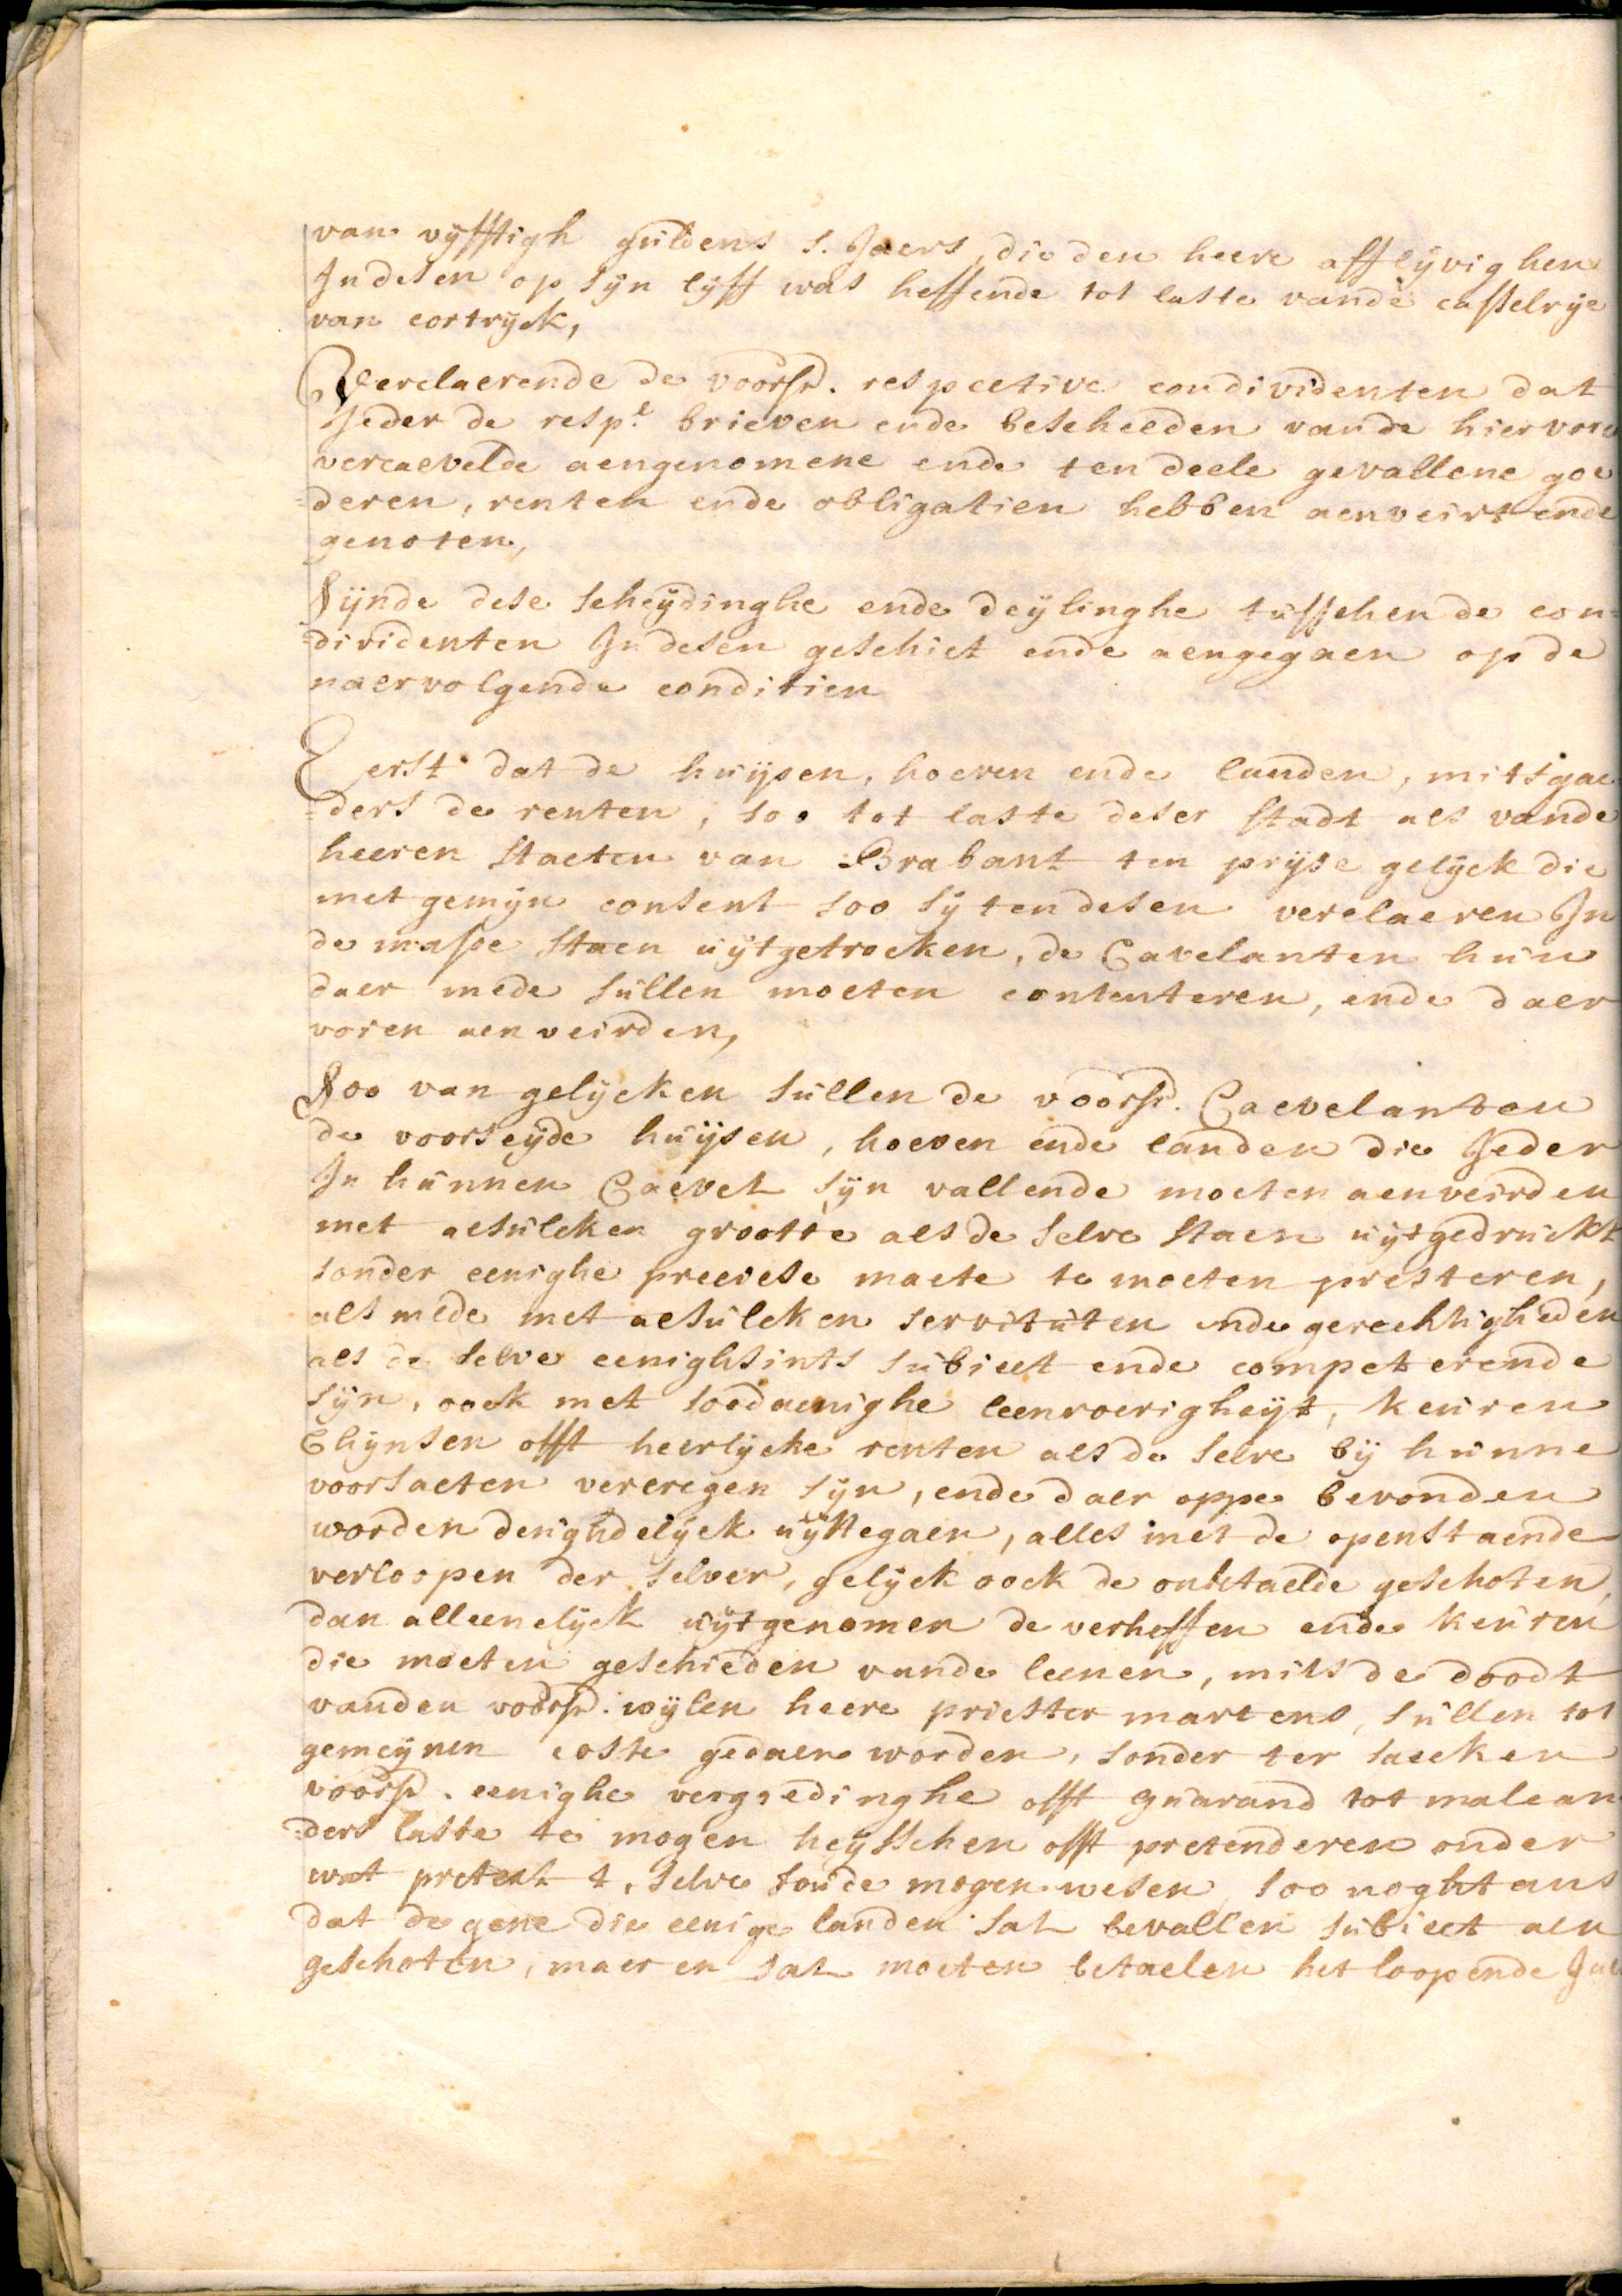 van vijfftigh guldens s. Jaers, die den heere afflijvighen
In desen op sijn lijff was heffende tot laste vande casselrije
van cortrijck,
Verclaerende de voorsr. respective condividenten dat
Jeder de respe. brieven ende bescheeden vande hier vore
vercaevelde aengenomene ende ten deele gevallene goe
=deren, renten ende obligatien hebben aenveirt ende
genoten,
Sijnde dese scheijdinghe ende deijlinghe tusschen de con=
=dividenten In desen geschiet ende aengegaen op de
naervolgende conditien
Eerst dat de huijsen, hoeven ende landen, mitsgae
=ders de renten, soo tot laste deser stadt als vande
heeren staeten van Brabant ten prijse gelijck die
met gemijn consent soo sij ten desen verclaeren In
de masse staen uijtgetrocken, de Cavelanten hun
daer mede sullen moeten contenteren, ende daer
voren aenveirden,
Soo van gelijcken sullen de voorsr. Caevelanten
de voorseijde huijsen, hoeven ende landen die Jeder
In hunnen Caevel sijn vallende moeten aenveirden
met alsulcken grootte als de selve staen uijtgedruckt
sonder eenighe preciese maete te moeten presteren,
als mede met alsulcken servituten ende gerechtigheden
als de selve eenighsints subiect ende competerende
sijn, oock met soodaenighe leenroerigheijt, keuren
Chijnsen offt heerlijcke renten als de selve bij hunne
voorsaeten vercregen sijn, ende daer oppe bevonden
worden deughdelijck uijttegaen, alles met de openstaende
verloopen der selver, gelijck oock de onbetaelde geschoten,
dan alleenelijck uijtgenomen de verheffen ende keuren
die moeten geschieden vande leenen, mits de doodt
vanden voorsr. wijlen heere priester martens, sullen tot
gemeijnen coste gedaen worden, sonder ter saecken
voorsr. eenighe vergoedinghe offt guarand tot malcan
=ders laste te mogen heijsschen offt pretenderen onder
wat pretext t, selve soude mogen wesen, soo noghtans
dat de gene die eenige landen sal bevallen subiect aen
geschoten, maer en sal moeten betaelen het loopende Jae